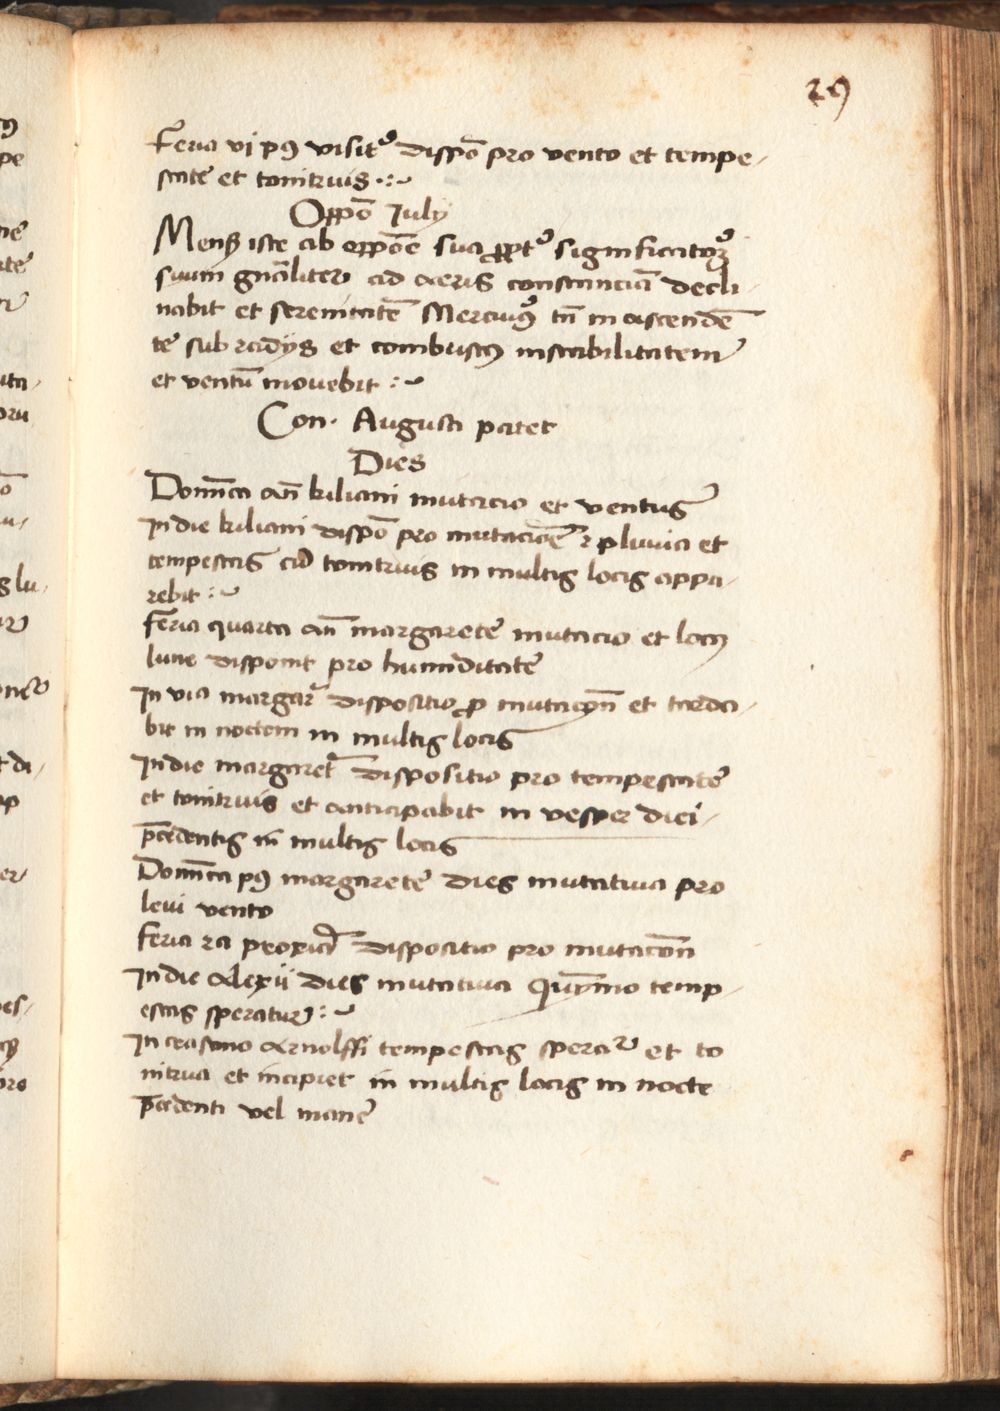 29
Feria vj pꝰ visit dispo͞ pro vento et tempe-
state et tonitruis
Oppo͞ July
Mensꝭ iste ab oppo͞e sua significatoꝝ
suum gn͞aliter ad aeris constancia͞ decli-
nabit et serenitate͞ Mercuriꝰ tn͞ in ascende͞
te sub radijs et combustꝰ instabilitatem
et ventu͞ movebit
Con. Augusti patet
Dies
Domi͞ca an͞ kiliani mutacio et ventus
In die kiliani dispo͞ pro mutacio͞e et pluvia et
tempestas cu͞ tonitruis in multis locis appa-
rebit
feria quarta an͞ margarete mutacio et locꝰ
lune disponit pro humiditate
In via margar͞ dispositio ꝓ mutacion͞ et tarda-
bit in noctem in multis locis
In die margaret͞ dispositio pro tempestate
et tonitruis et anticipabit in vesper diei-
p͞cedentis in multis locis
Domi͞ca pꝰ margarete dies mutativa pro
levi vento
feria 2a proxi͞a dispositio pro mutacion͞
In die Alexii dies mutativa Quy͞mo temp-
estas speratur
In crastino Arnolffi tempestas speratur et to
nitrua et incipiet in multis locis in nocte
p͞cedenti vel mane